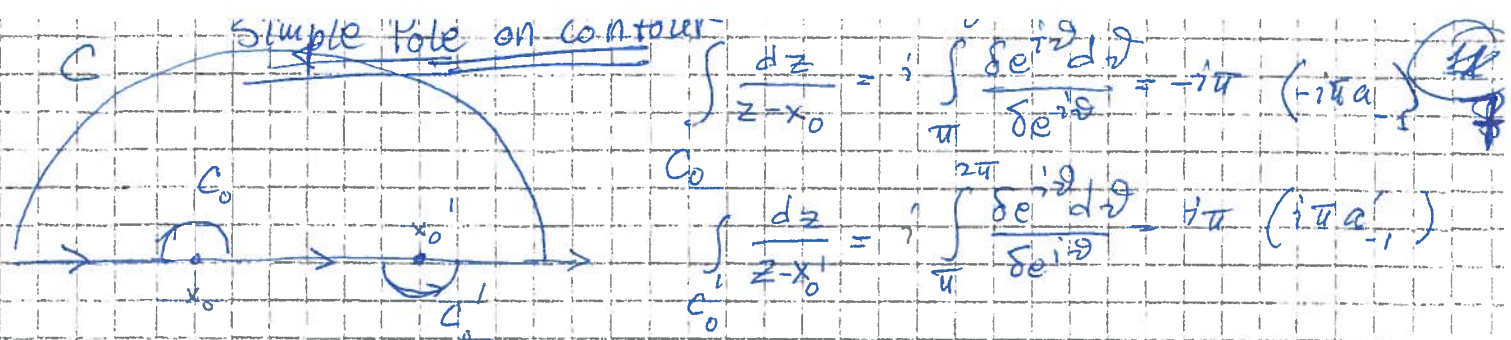 Simple Pole on contour
C
∫_{C_0} dz/(z-x_0) = i ∫_π^0 δe^{iϑ}dϑ/δe^{iϑ} = -iπ (-iπa_{-1})
C_0
x_0'
x_0
C_0'
∫_{C_0'} dz/(z-x_0') = i ∫_π^{2π} δe^{iϑ}dϑ/δe^{iϑ} = iπ (iπa'_{-1})